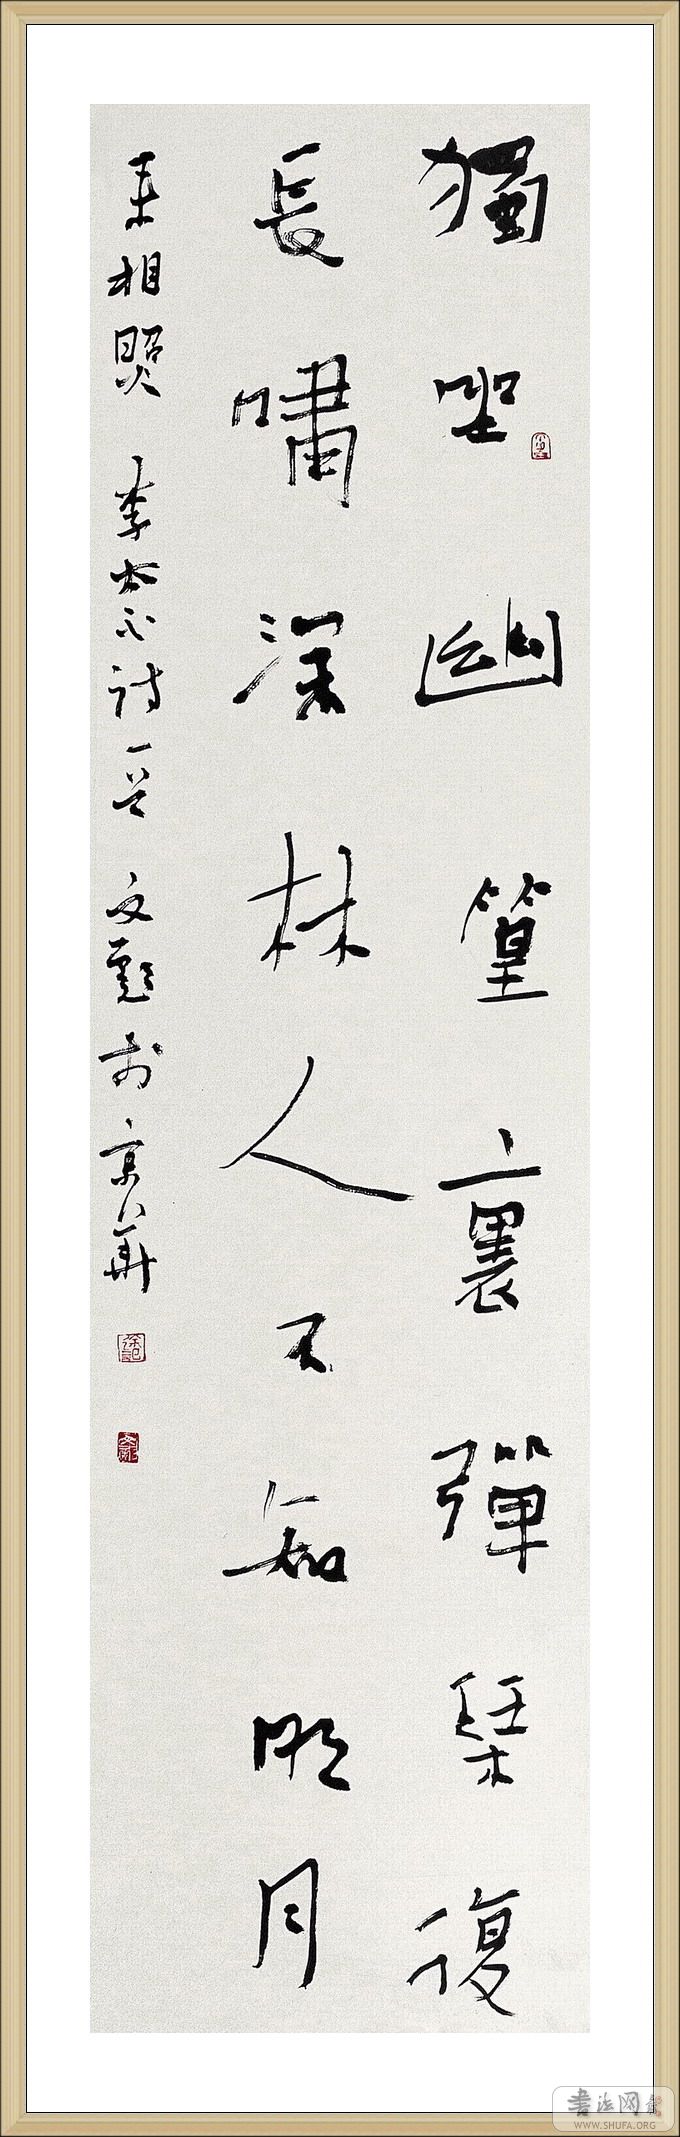 獨坐幽篁裏彈琴復
長嘯深林人不知明月
來相照 李太白詩一首 文彪於京華
書法网
WWW.SHUFA.ORG